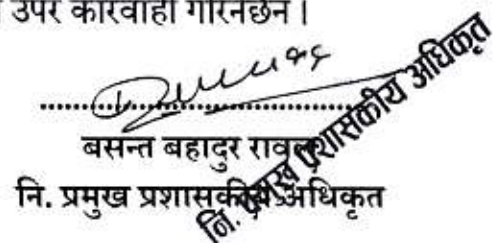 उपर कारवाही गरिनेछन् ।
बसन्त बहादुर रावल
नि. प्रमुख प्रशासकीय अधिकृत
नि. प्रमुख प्रशासकीय अधिकृत